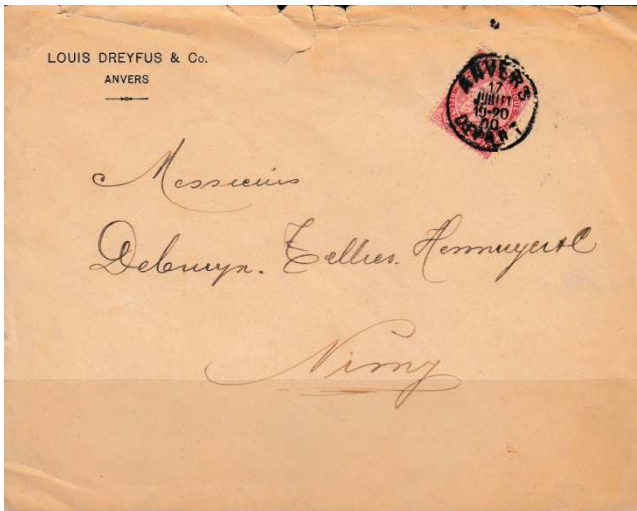 LOUIS DREYFUS & Co.
ANVERS
ANVERS
17
JUIL
19-20
00
DEPART
Messieurs
Debruyn. Tellier.
Nimy